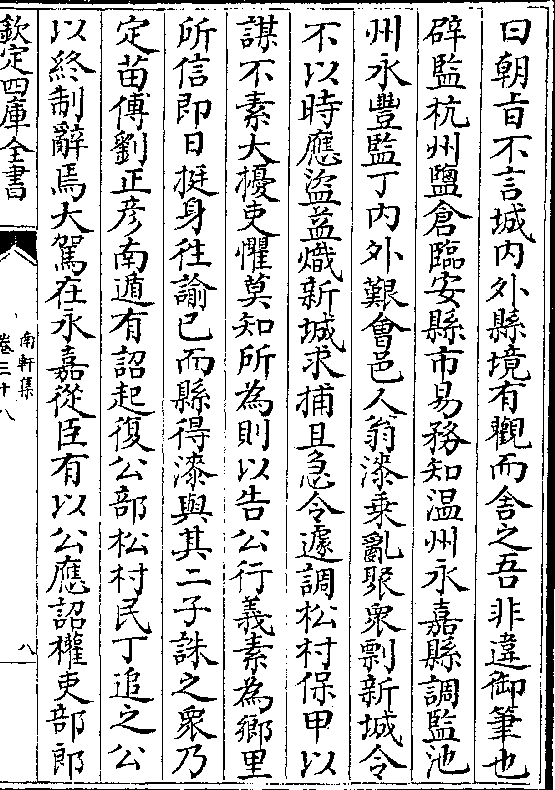 曰朝旨不言城内外縣境有觀而舍之吾非違御筆也
辟監杭州鹽倉臨安縣市易務知温州永嘉縣調監池
州永豐監丁内外艱會邑人翁漆乗亂聚衆剽新城令
不以時應盗益熾新城求捕且急令遽調松村保甲以
謀不素大擾吏懼莫知所為則以告公行義素為鄉里
所信即日挺身往諭已而縣得漆與其二子誅之衆乃
定苗傅劉正彦南遁有詔起復公部松村民丁追之公
以終制辭焉大駕在永嘉從臣有以公應詔權吏部郎
欽定四庫全書
南軒集
卷三十八
八